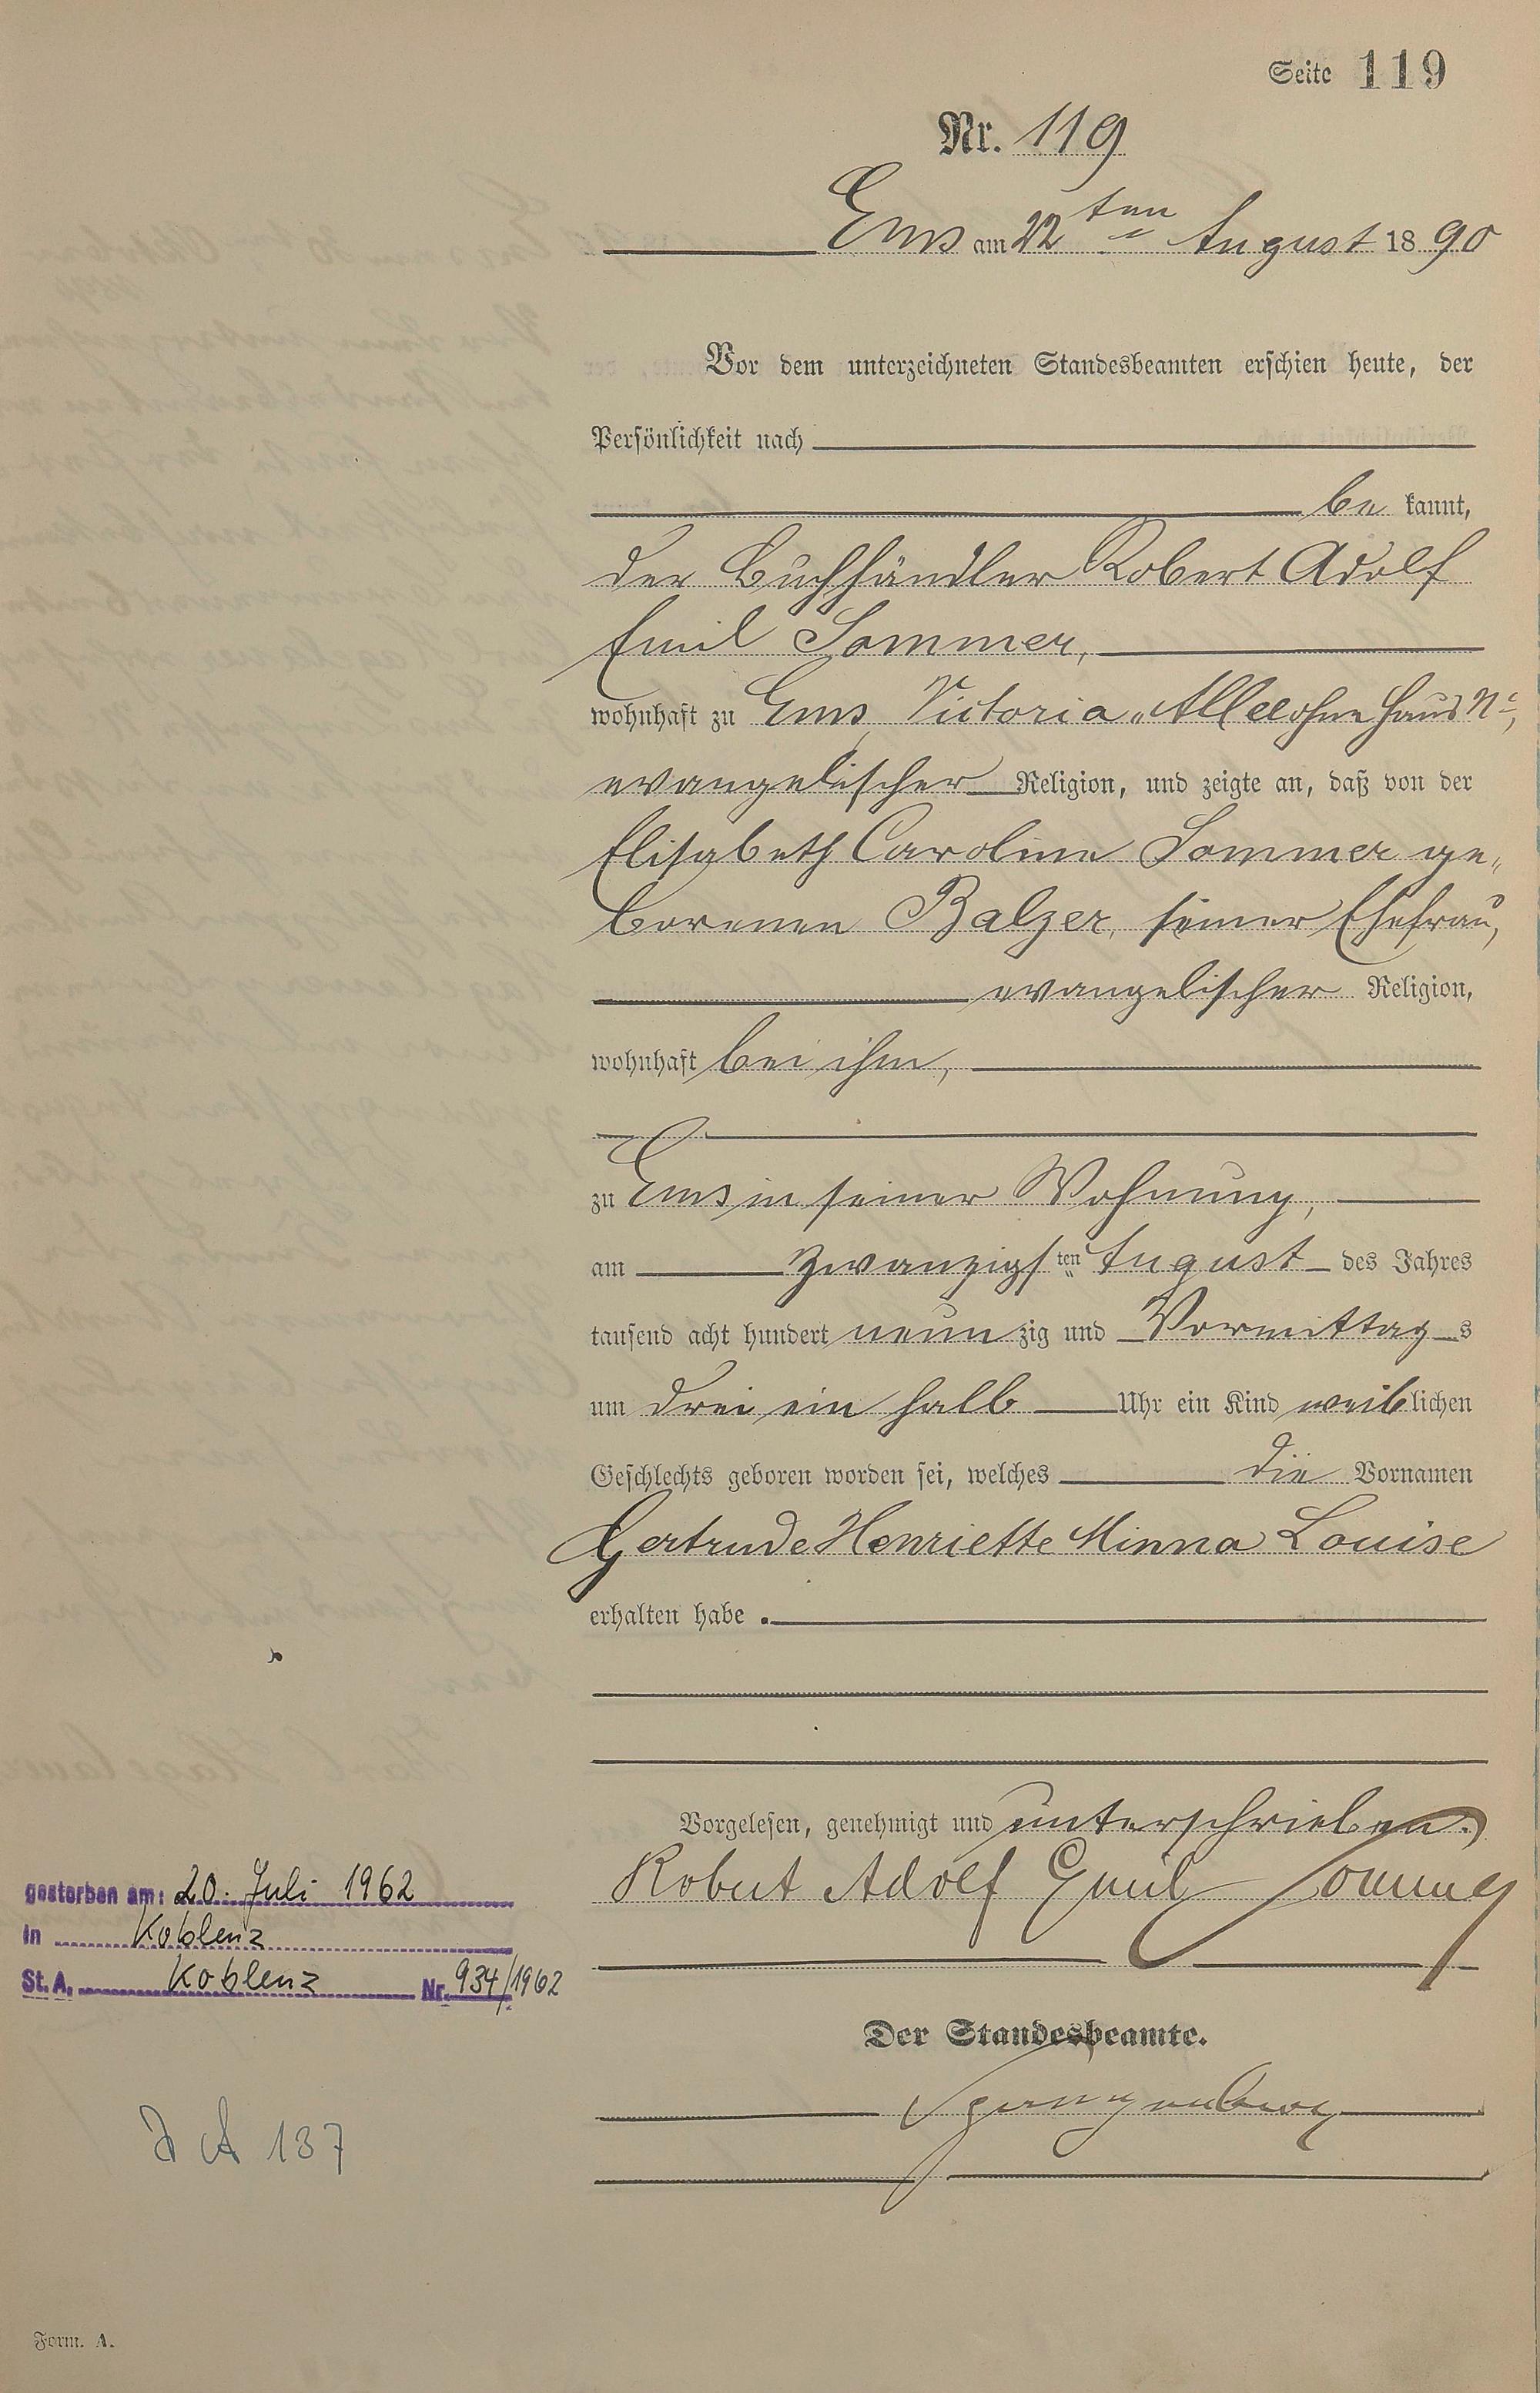 Seite 119
Nr. 119
Ems am 22ten August 1890
Vor dem unterzeichneten Standesbeamten erschien heute, der
Persönlichkeit nach
be kannt,
der Buchhändler Robert Adolf
Emil Sommer,
wohnhaft zu Ems, Victoria-Allee ohne Haus No,
evangelischer Religion, und zeigte an, daß von der
Elisabeth Caroline Sommer ge-
borenen Balzer, seiner Ehefrau,
evangelischer Religion,
wohnhaft bei ihm,
zu Ems in seiner Wohnung,
am zwanzigsten August des Jahres
tausend acht hundert neunzig und Vormittags
um drei ein halb Uhr ein Kind weiblichen
Geschlechts geboren worden sei, welches die Vornamen
Gertrude Henriette Minna Louise
erhalten habe.
Vorgelesen, genehmigt und unterschrieben.
Robert Adolf Emil Sommer
gestorben am: 20. Juli 1962
in Koblenz
St. A. Koblenz Nr. 934/1962
Der Standesbeamte.
137
Form. A.